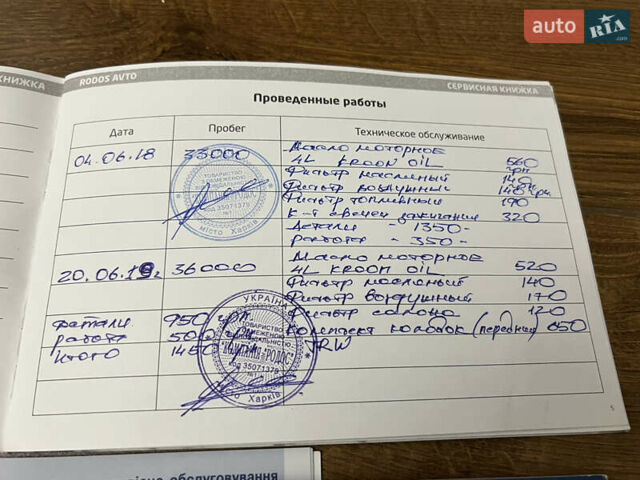 auto RIA .com
КНИЖКА
RODOS AVTO
СЕРВИСНАЯ КНИЖКА
Проведенные работы
Дата Пробег Техническое обслуживание
04.06.18 33000 Масло моторное
4L KROON OIL 560 грн
Фильтр масляный 140
Фильтр воздушный 140 грн
Фильтр топливный 190
К-т свечей зажигания 320
Детали - 1350 -
работа - 350 -
20.06.19г 36000 Масло моторное
4L KROON OIL 520
Фильтр масляный 140
Фильтр воздушный 170
детали 950 грн Фильтр салона 120
работа 500 грн Комплект колодок (передний
Итого 1450 грн TRW
ТОВАРИСТВО
З ОБМЕЖЕНОЮ
ВІДПОВІДАЛЬНІСТЮ
код 35071379
місто Харків
УКРАЇНА
ТОВАРИСТВО
З ОБМЕЖЕНОЮ
ВІДПОВІДАЛЬНІСТЮ
"КОМПАНІЯ "РОДОС"
код 35071379
Харків
5
обслуговування